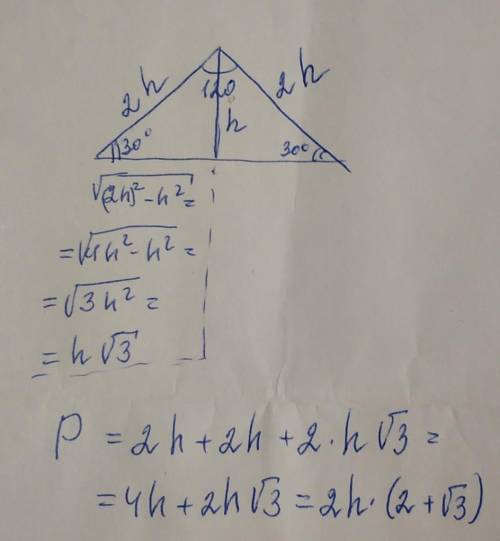 2h 120 2h
h
30° 30°
√(2h)²-h² =
= √4h²-h² =
= √3h² =
= h√3
P = 2h + 2h + 2·h√3 =
= 4h + 2h√3 = 2h·(2+√3)